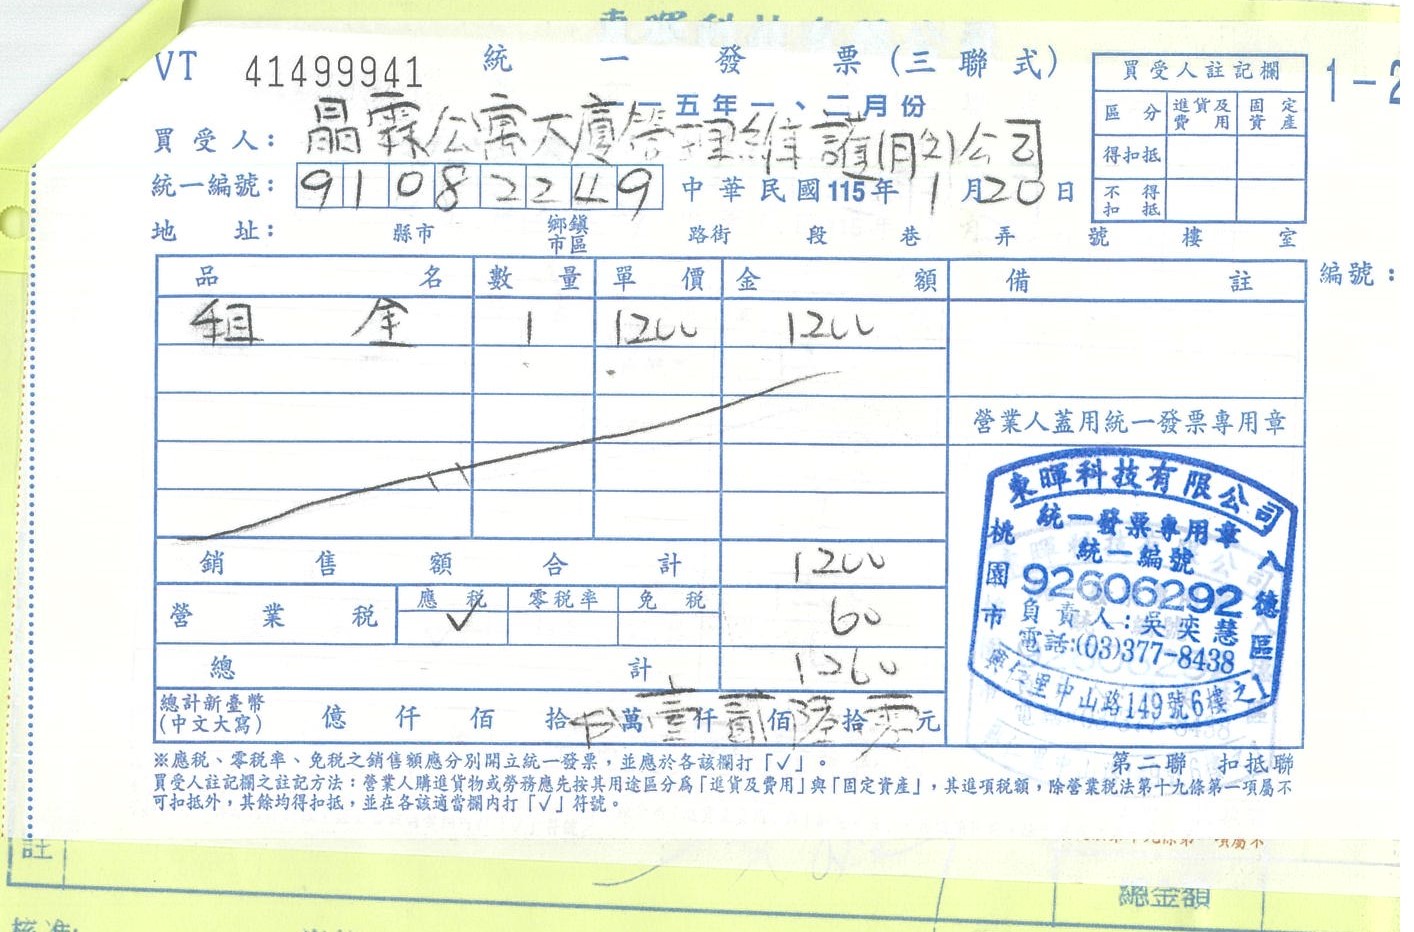 東暉科技有限公司
VT 41499941 統一發票(三聯式)
一一五年一、二月份
買受人: 晶霖公寓大廈管理維護(股)公司
統一編號: 91082249 中華民國115年1月20日
地址: 縣市 鄉鎮市區 路街 段 巷 弄 號 樓 室
買受人註記欄
區分 進貨及費用 固定資產
得扣抵
不得扣抵
1-2
編號:
品名 數量 單價 金額 備註
租金 1 1200 1200
營業人蓋用統一發票專用章
銷售額合計 1200
營業稅 應稅 零稅率 免稅
✓ 60
總計 1260
總計新臺幣
(中文大寫) 億 仟 佰 拾 萬 壹 仟 貳 佰 陸 拾 零 元
東暉科技有限公司
統一發票專用章
統一編號
92606292
負責人:吳奕慧
電話:(03)377-8438
桃園市八德區
興仁里中山路149號6樓之1
※應稅、零稅率、免稅之銷售額應分別開立統一發票,並應於各該欄打「✓」。
第二聯 扣抵聯
買受人註記欄之註記方法:營業人購進貨物或勞務應先按其用途區分為「進貨及費用」與「固定資產」,其進項稅額,除營業稅法第十九條第一項屬不
可扣抵外,其餘均得扣抵,並在各該適當欄內打「✓」符號。
註
總金額
核准: